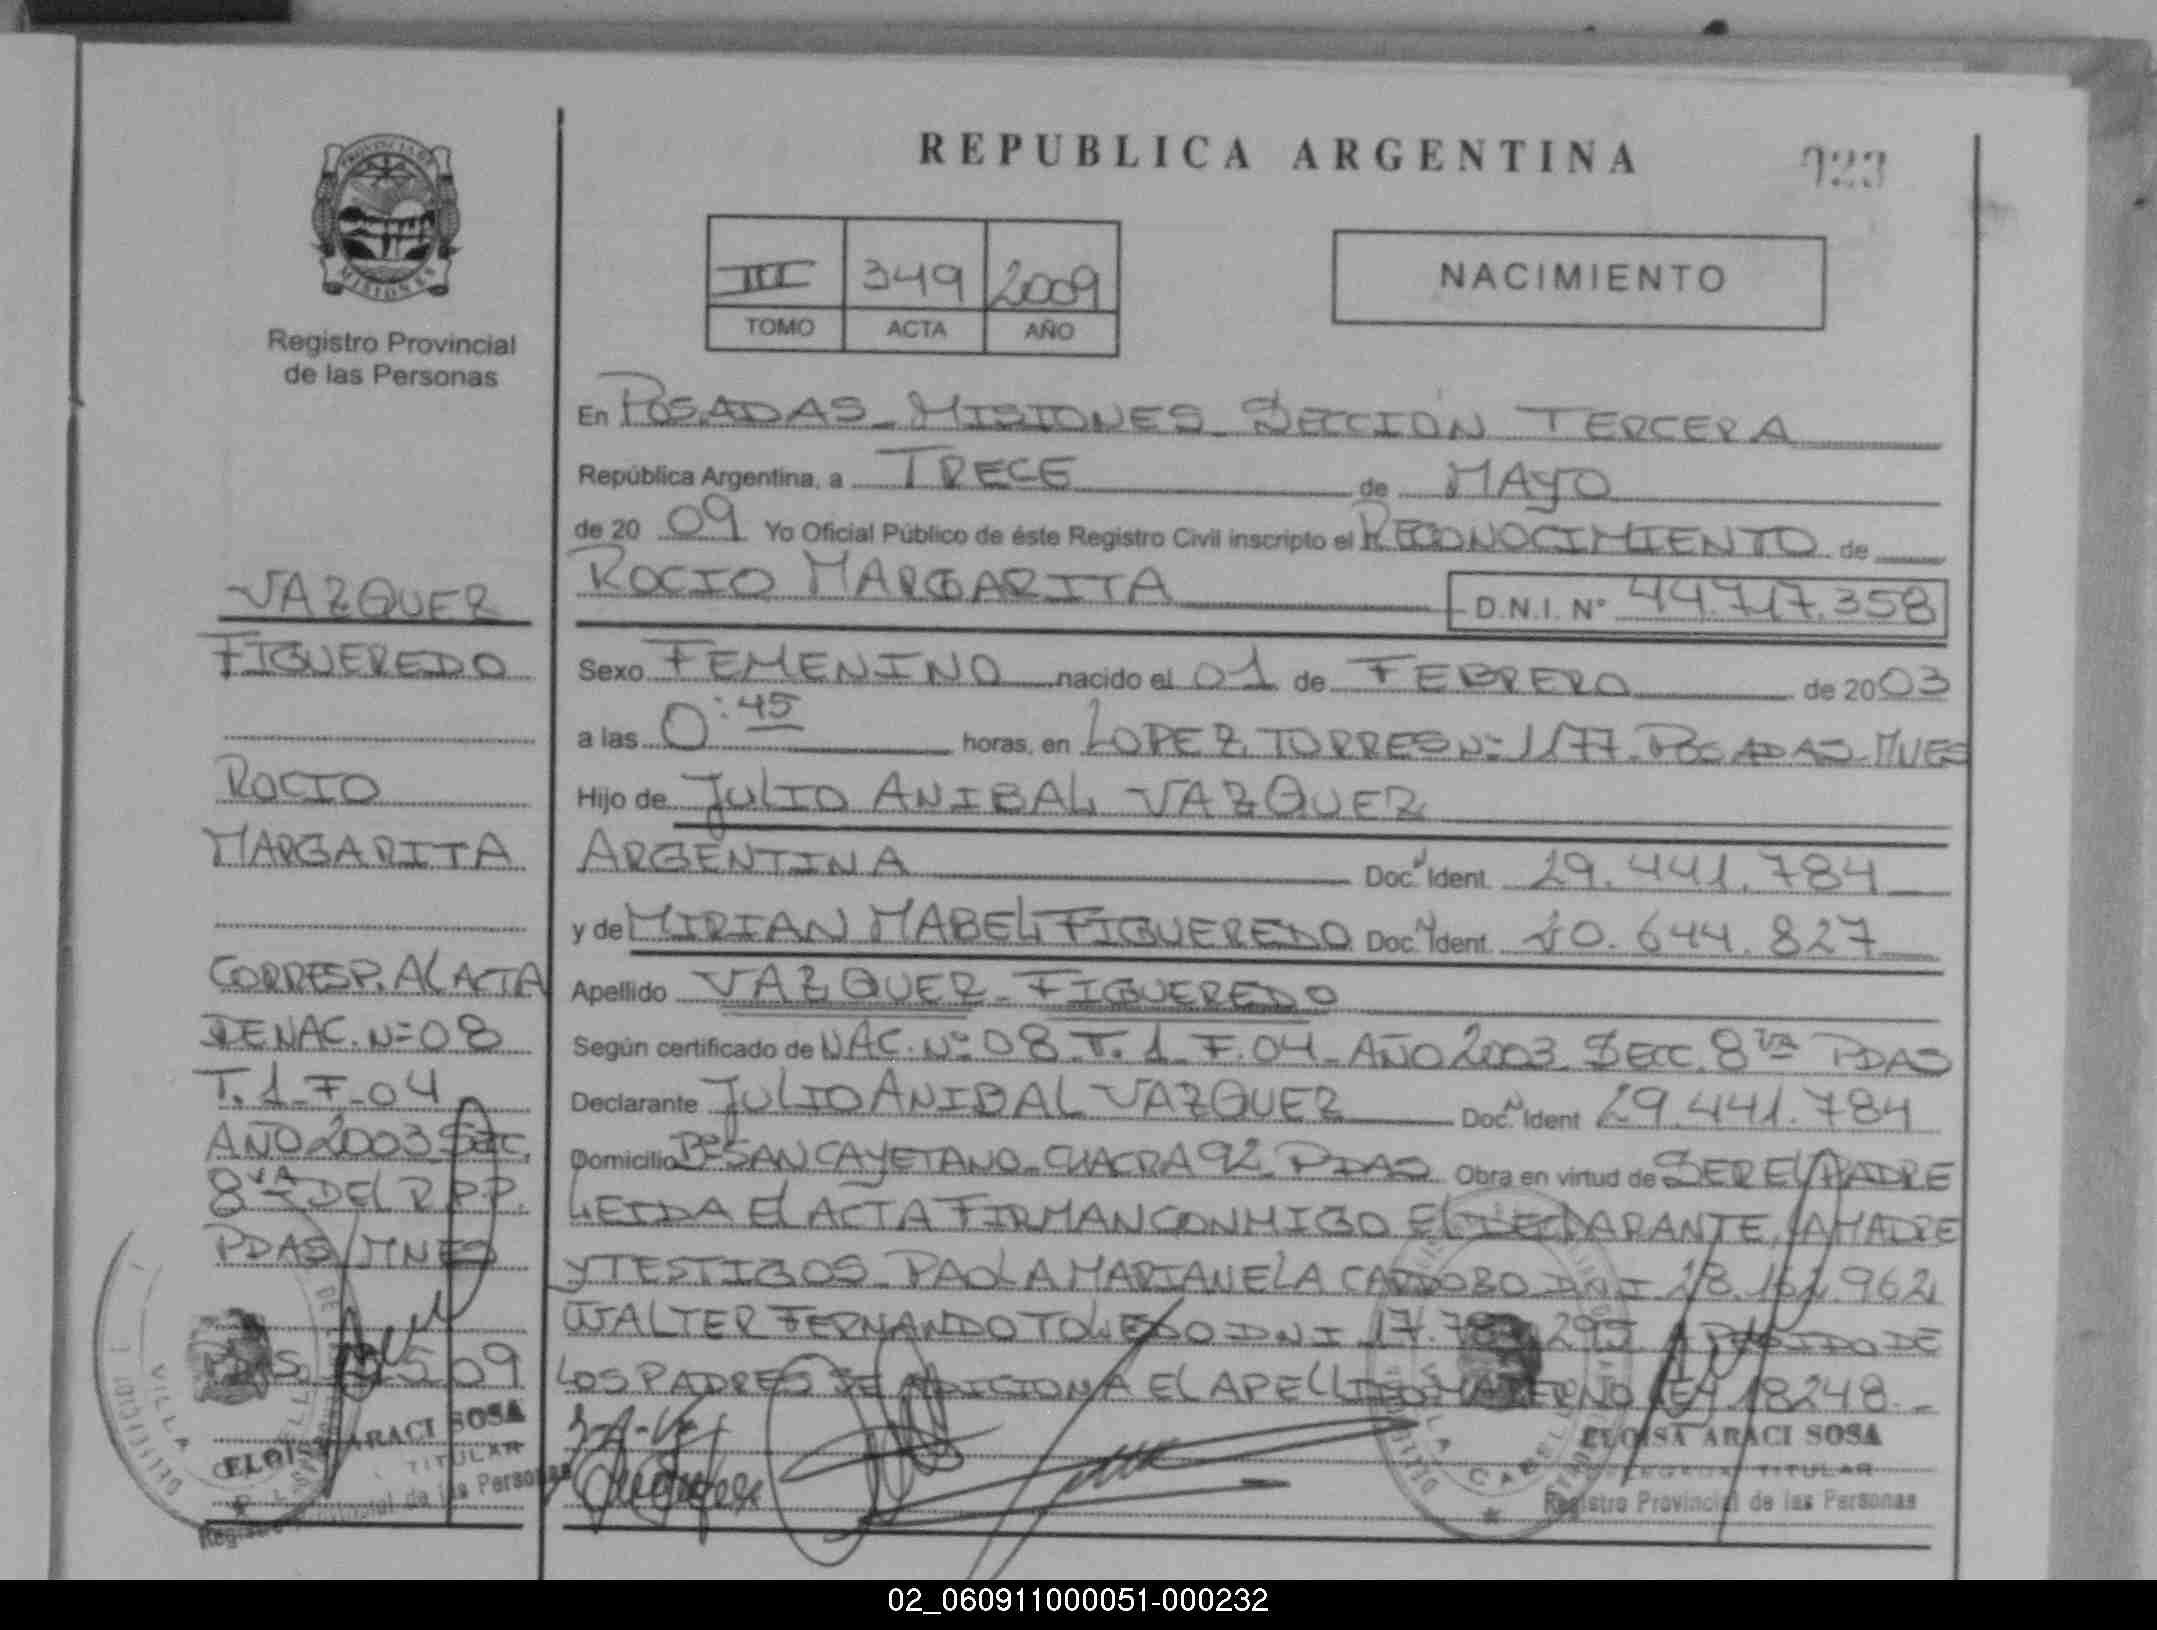 REPUBLICA ARGENTINA
923
PROVINCIA DE
MISIONES
Registro Provincial
de las Personas
III 349 2009
TOMO ACTA AÑO
NACIMIENTO
En POSADAS - MISIONES - SECCIÓN TERCERA
República Argentina, a TRECE de MAYO
de 20 09 Yo Oficial Público de éste Registro Civil inscripto el RECONOCIMIENTO de
ROCIO MARGARITA D.N.I. Nº 44.717.358
Sexo FEMENINO nacido el 01 de FEBRERO de 2003
a las 0:45 horas, en LOPEZ TORRES Nº 1177 - POSADAS - MNES
Hijo de JULIO ANIBAL VAZQUEZ
ARGENTINA Doc. Ident. 29.441.784
y de MIRIAN MABEL FIGUEREDO Doc. Ident. 20.644.827
Apellido VAZQUEZ - FIGUEREDO
Según certificado de NAC. Nº 08 - T. 1 - F. 04 - AÑO 2003 - SECC. 8va PDAS
Declarante JULIO ANIBAL VAZQUEZ Doc. Ident 29.441.784
Domicilio Bº SAN CAYETANO - CHACRA 92 - PDAS Obra en virtud de SER EL PADRE
LEIDA EL ACTA FIRMAN CONMIGO EL DECLARANTE, LA MADRE
Y TESTIGOS - PAOLA MARIANELA CARDOZO DNI 28.162.962
WALTER FERNANDO TOLEDO DNI 17. A PEDIDO DE
LOS PADRES SE ADICIONA EL APELLIDO MATERNO LEY 18248.-
ELOISA ARACI SOSA
TITULAR
Registro Provincial de las Personas
VAZQUEZ
FIGUEREDO
ROCIO
MARGARITA
CORRESP. AL ACTA
DE NAC. Nº 08
T. 1 - F - 04
AÑO 2003 SECC.
8va DEL R.P.P.
PDAS / MNES
PDAS. 09
ELOISA ARACI SOSA
TITULAR
Registro Provincial de las Personas
02_060911000051-000232